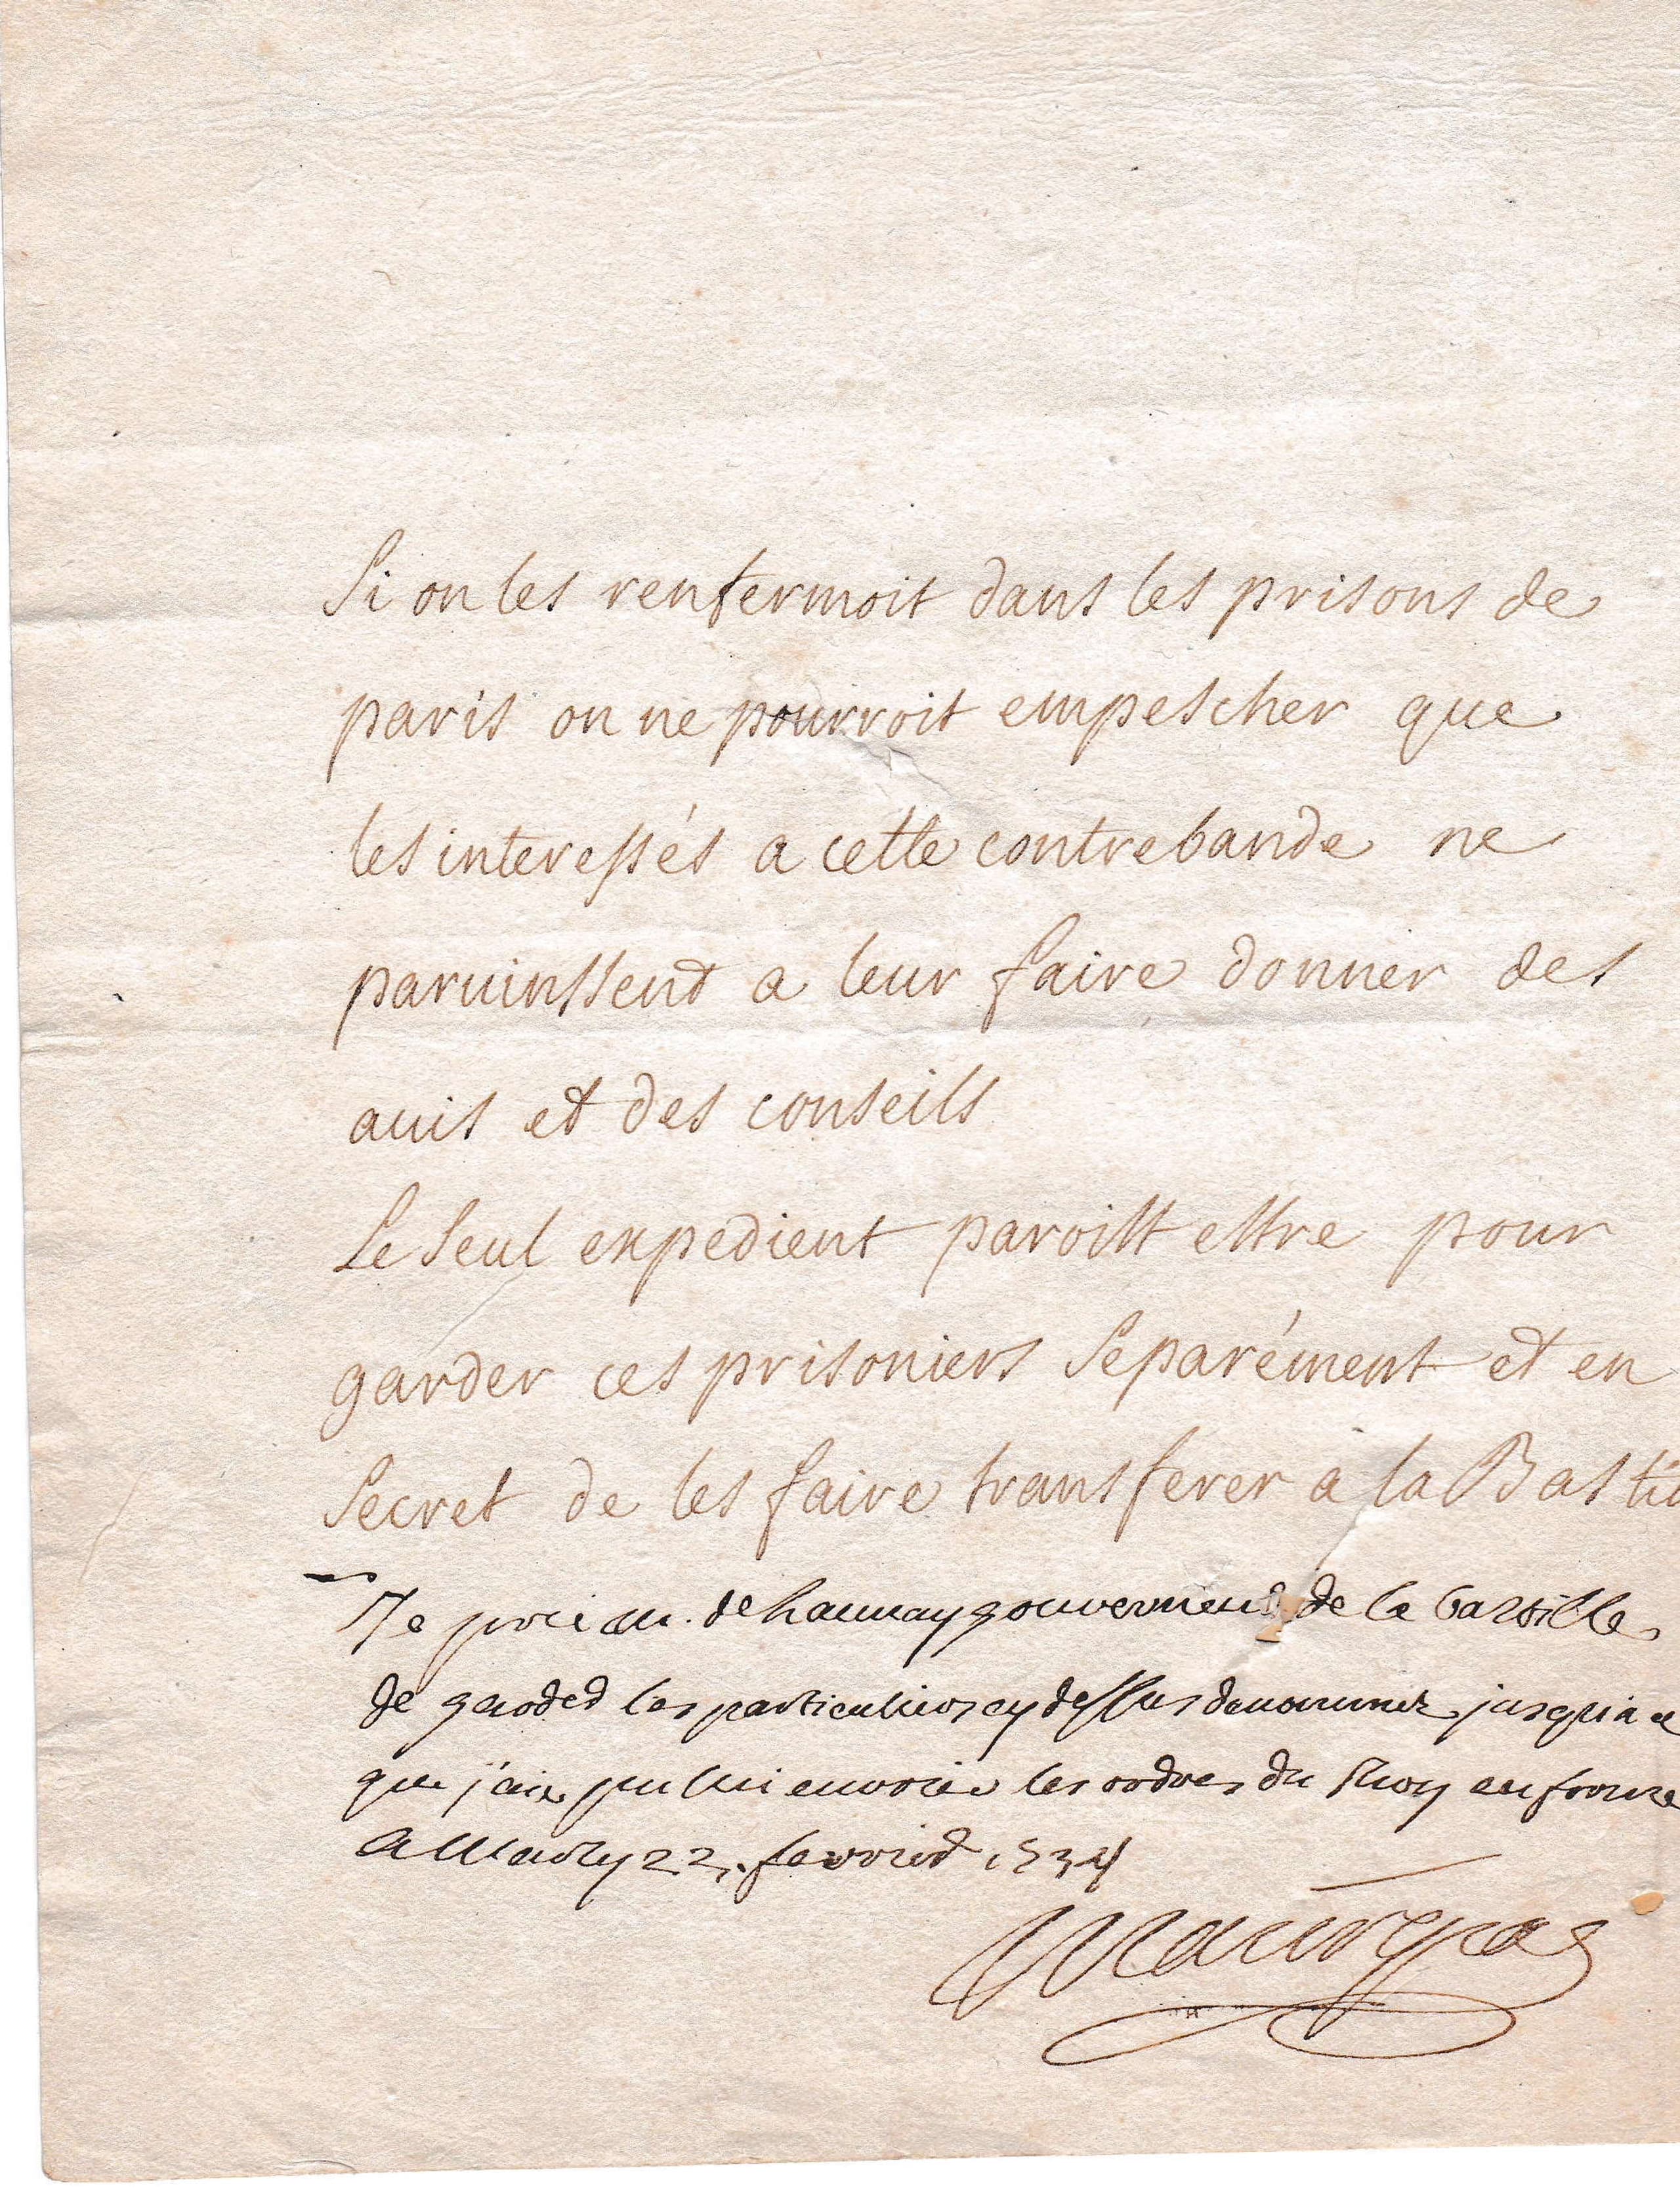 Si on les renfermoit dans les prisons de
paris on ne pourroit empescher que
les interessés a cette contrebande ne
paruinssent a leur faire donner des
auis et des conseils
Le seul expedient paroist estre pour
garder ces prisoniers separément et en
secret de les faire transferer a la Bastil
Je prie m. de Launay gouverneur de la bastille
de garder les particuliers cy dessus denommez jusqu'a ce
que j'aie pu lui envoier les ordres du Roy en forme
a Marly 22. fevrier 1734
Maurepas